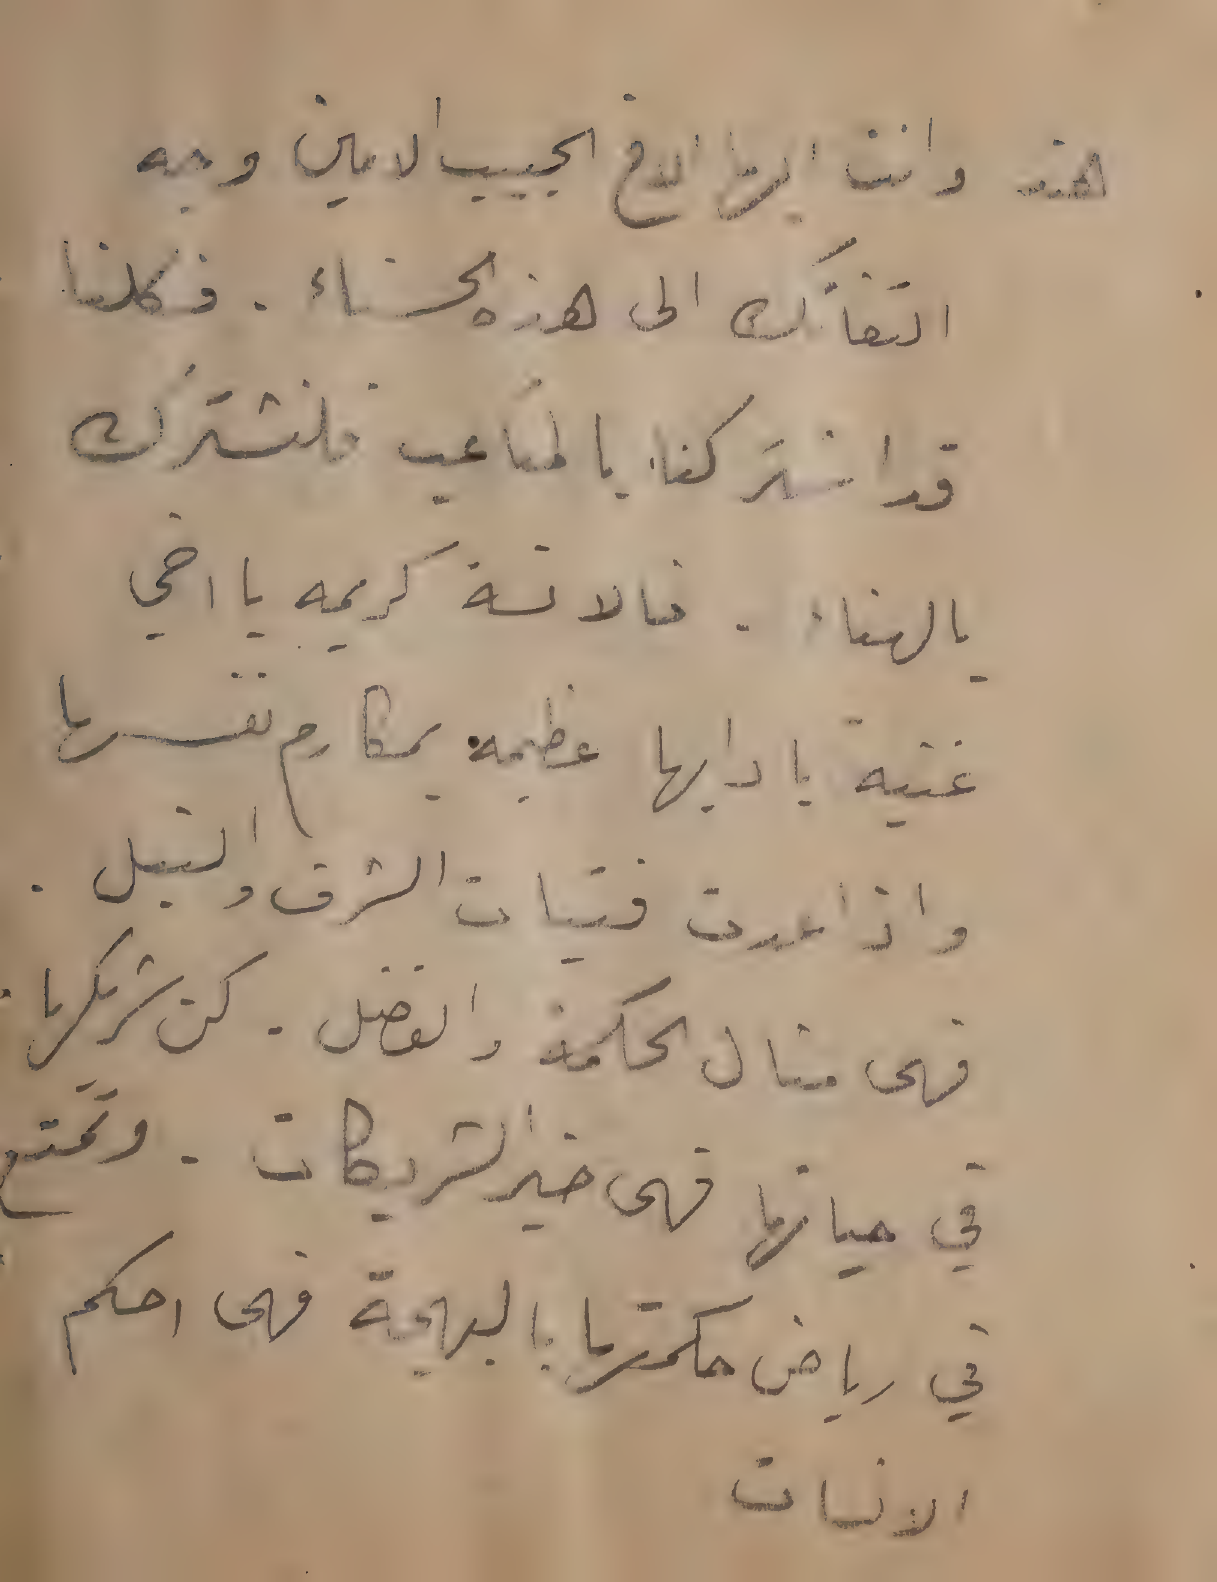 هند وانت ايها الاخ الحبيب الامين وجه
التفاتك الى هذه الحسناء . فكلنا
قد اشتركنا بالمتاعب فلنشترك
بالهناء . فالانسة كريمه يا اخي
غنيه بادابها عظيمه بمكارم نفسها
واذا عدت فتيات الشرف والنبل .
فهي مثال الحكمة والفضل . كن شريكها
في حياتها فهي خير الشريكات . وتمتع
في رياض حكمتها بالبهجة فهي احكم
الانسات